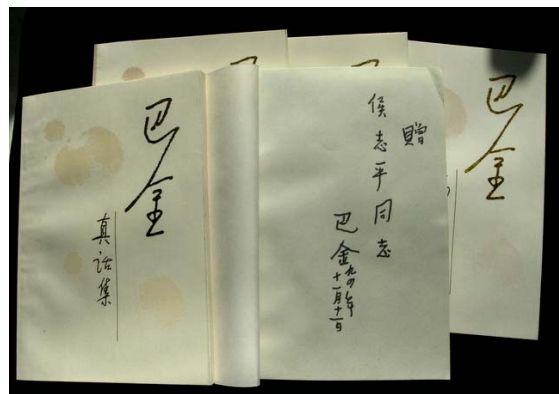 巴金
真话集
贈
侯志平同志
巴金 九四年
十一月十一日
巴金